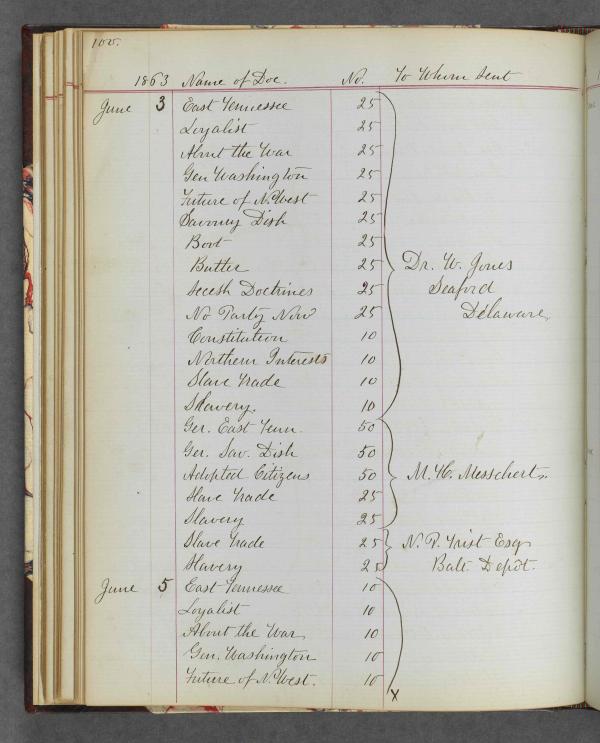 100.
1863 Name of Doc. No. To Whom Sent
June 3 East Tennessee 25
Loyalist 25
About the War 25
Gen Washington 25
Future of N. West 25
Savoury Dish 25
Boot 25
Butler 25 Dr. W. Jones
Secesh Doctrines 25 Seaford
No Party Now 25 Delaware,
Constitution 10
Northern Interests 10
Slave Trade 10
Slavery. 10
Ger. East Tenn. 50
Ger. Sav. Dish 50
Adopted Citizens 50 M. H. Messchert.
Slave Trade 25
Slavery 25
Slave Trade 25 N. P. Trist Esq
Slavery 25 Balt Depôt.
June 5 East Tennessee 10
Loyalist 10
About the War 10
Gen. Washington 10
Future of N. West. 10
X